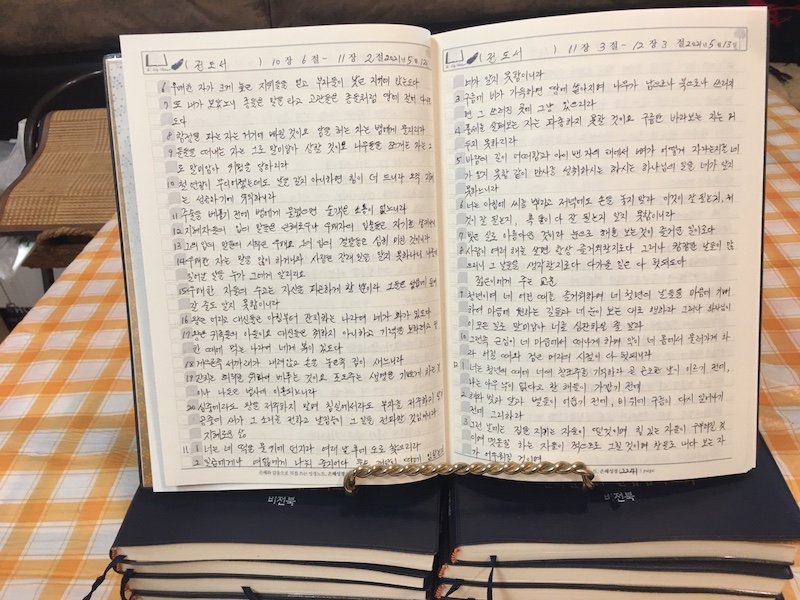 (전도서 ) 10장 6절 - 11장 2절 2021년 5월 12일
6 우매한 자가 크게 높은 지위들을 얻고 부자들이 낮은 지위에 앉는도다
7 또 내가 보았노니 종들은 말을 타고 고관들은 종들처럼 땅에 걸어 다니는
도다
8 함정을 파는 자는 거기에 빠질 것이요 담을 허는 자는 뱀에게 물리리라
9 돌들을 떠내는 자는 그로 말미암아 상할 것이요 나무들을 쪼개는 자는 그
로 말미암아 위험을 당하리라
10 철 연장이 무디어졌는데도 날을 갈지 아니하면 힘이 더 드느니라 오직 지혜
는 성공하기에 유익하니라
11 주술을 베풀기 전에 뱀에게 물렸으면 술객은 소용이 없느니라
12 지혜자들의 입의 말들은 은혜로우나 우매자의 입술들은 자기를 삼키나니
13 그의 입의 말들의 시작은 우매요 그의 입의 결말들은 심히 미친 것이니라
14 우매한 자는 말을 많이 하거니와 사람은 장래 일을 알지 못하나니 나중에
일어날 일을 누가 그에게 알리리요
15 우매한 자들의 수고는 자신을 피곤하게 할 뿐이라 그들은 성읍에 들어
갈 줄도 알지 못함이니라
16 왕은 어리고 대신들은 아침부터 잔치하는 나라여 네게 화가 있도다
17 왕은 귀족들의 아들이요 대신들은 취하지 아니하고 기력을 보하려고 정
한 때에 먹는 나라여 네게 복이 있도다
18 게으른즉 서까래가 내려앉고 손을 놓은즉 집이 새느니라
19 잔치는 희락을 위하여 베푸는 것이요 포도주는 생명을 기쁘게 하는 것
이나 돈은 범사에 이용되느니라
20 심중에라도 왕을 저주하지 말며 침실에서라도 부자를 저주하지 말라
공중의 새가 그 소리를 전하고 날짐승이 그 일을 전파할 것임이니라
지혜로운 삶
11 1 너는 네 떡을 물 위에 던져라 여러 날 후에 도로 찾으리라
2 일곱에게나 여덟에게 나눠 줄지어다
(전도서 ) 11장 3절 - 12장 3절 2021년 5월 13일
네가 알지 못함이니라
3 구름에 비가 가득하면 땅에 쏟아지며 나무가 남으로나 북으로나 쓰러지
면 그 쓰러진 곳에 그냥 있으리라
4 풍세를 살펴보는 자는 파종하지 못할 것이요 구름만 바라보는 자는 거
두지 못하리라
5 바람의 길이 어떠함과 아이 밴 자의 태에서 뼈가 어떻게 자라는지를 네
가 알지 못함 같이 만사를 성취하시는 하나님의 일을 네가 알지
못하느니라
6 너는 아침에 씨를 뿌리고 저녁에도 손을 놓지 말라 이것이 잘 될는지, 저
것이 잘 될는지, 혹 둘이 다 잘 될는지 알지 못함이니라
7 빛은 실로 아름다운 것이라 눈으로 해를 보는 것이 즐거운 일이로다
8 사람이 여러 해를 살면 항상 즐거워할지로다 그러나 캄캄한 날들이 많
으리니 그 날들을 생각할지로다 다가올 일은 다 헛되도다
젊은이에게 주는 교훈
9 청년이여 네 어린 때를 즐거워하며 네 청년의 날들을 마음에 기뻐
하여 마음에 원하는 길들과 네 눈이 보는 대로 행하라 그러나 하나님이
이 모든 일로 말미암아 너를 심판하실 줄 알라
10 그런즉 근심이 네 마음에서 떠나게 하며 악이 네 몸에서 물러가게 하
라 어릴 때와 검은 머리의 시절이 다 헛되니라
12 1 너는 청년의 때에 너의 창조주를 기억하라 곧 곤고한 날이 이르기 전에,
나는 아무 낙이 없다고 할 해들이 가깝기 전에
2 해와 빛과 달과 별들이 어둡기 전에, 비 뒤에 구름이 다시 일어나기
전에 그리하라
3 그런 날에는 집을 지키는 자들이 떨 것이며 힘 있는 자들이 구부러질 것
이며 맷돌질 하는 자들이 적으므로 그칠 것이며 창들로 내다 보는 자
가 어두워질 것이며
비전북
비전북